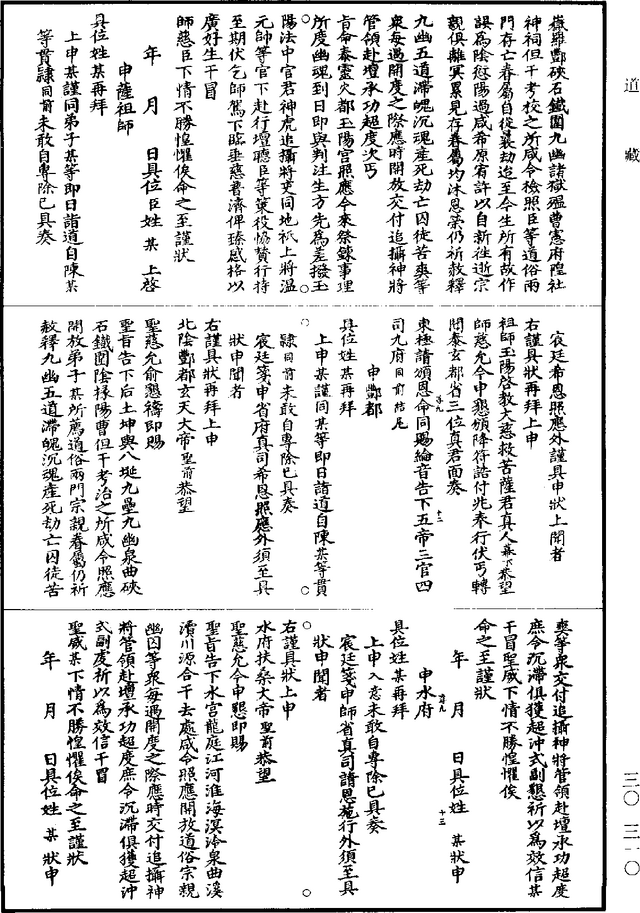 道藏
嶽羅酆硤石鐵圍九幽諸獄瘟曹憲府隍社
神祠但干考校之所咸令檢照臣等道俗兩
門存亡眷屬自從曩劫迄至今生所有故作
誤為陰愆陽過咸希原宥許以自新往逝宗
親俱離冥累見存眷屬均沐恩榮仍祈赦釋
九幽五道滯魄沉魂產死劫亡囚徒苦爽等
眾每過開度之際應時開放交付追攝神將
管領赴壇承功超度次丐
旨命泰靈火都玉陽宮照應今來祭鍊事理
所度幽魂到日即與判注生方先為差撥玉
陽法中官君神虎追攝將吏同地祇上將溫
元帥等官下赴行壇聽臣等策役恊贊行持
至期伏乞師駕下臨垂慈普濟俾臻感格以
廣好生干冒
師慈臣下情不勝惶懼俟命之至謹狀
年 月 日具位臣姓 某 上啓
申薩祖師
具位姓某再拜
上申某謹同弟子某等即日詣道自陳某
等貫隷同前未敢自專除已具奏
宸廷希恩照應外謹具申狀上聞者
右謹具狀再拜上申
祖師玉陽啓教大慈救苦薩君真人華下恭望
師慈允令申懇頒降符誥付兆奉行伏丐轉
聞泰玄都省三位真君面奏
東極請頒恩命同賜綸音告下五帝三官四
司九府同前結尾
申酆都
具位姓某再拜
上申某謹同某等即日詣道自陳某等貫
隷同前未敢自專除已具奏
宸廷箋申省府真司希恩照應外須至具
狀申聞者
右謹具狀再拜上申
北陰酆都玄天大帝聖前恭望
聖慈允俞懇禱即賜
聖旨告下后土坤輿八埏九壘九幽泉曲硤
石鐵圍陰掾陽曹但干考治之所咸令照應
開放弟子某所薦道俗兩門宗親眷屬仍祈
赦釋九幽五道滯魄沉魂產死劫亡囚徒苦
爽等眾交付追攝神將管領赴壇承功超度
庶令沉滯俱獲超沖式副懇祈以為效信某
干冒聖威下情不勝惶懼俟
命之至謹狀
年 月 日具位姓 某狀申
申水府
具位姓某再拜
上申入意未敢自專除已具奏
宸廷箋申師省真司請恩施行外須至具
狀申聞者
右謹具狀上申
水府扶桑大帝聖前恭望
聖慈允令申懇即賜
聖旨告下水宮龍庭江河淮海溟泠泉曲溪
瀆川源合干去處咸令照應開放道俗宗親
幽囚等眾每過開度之際應時交付追攝神
將管領赴壇承功超度庶令沉滯俱獲超沖
式副虔祈以為效信干冒
聖威某下情不勝惶懼俟命之至謹狀
年 月 日具位姓 某狀申
三〇 三一〇